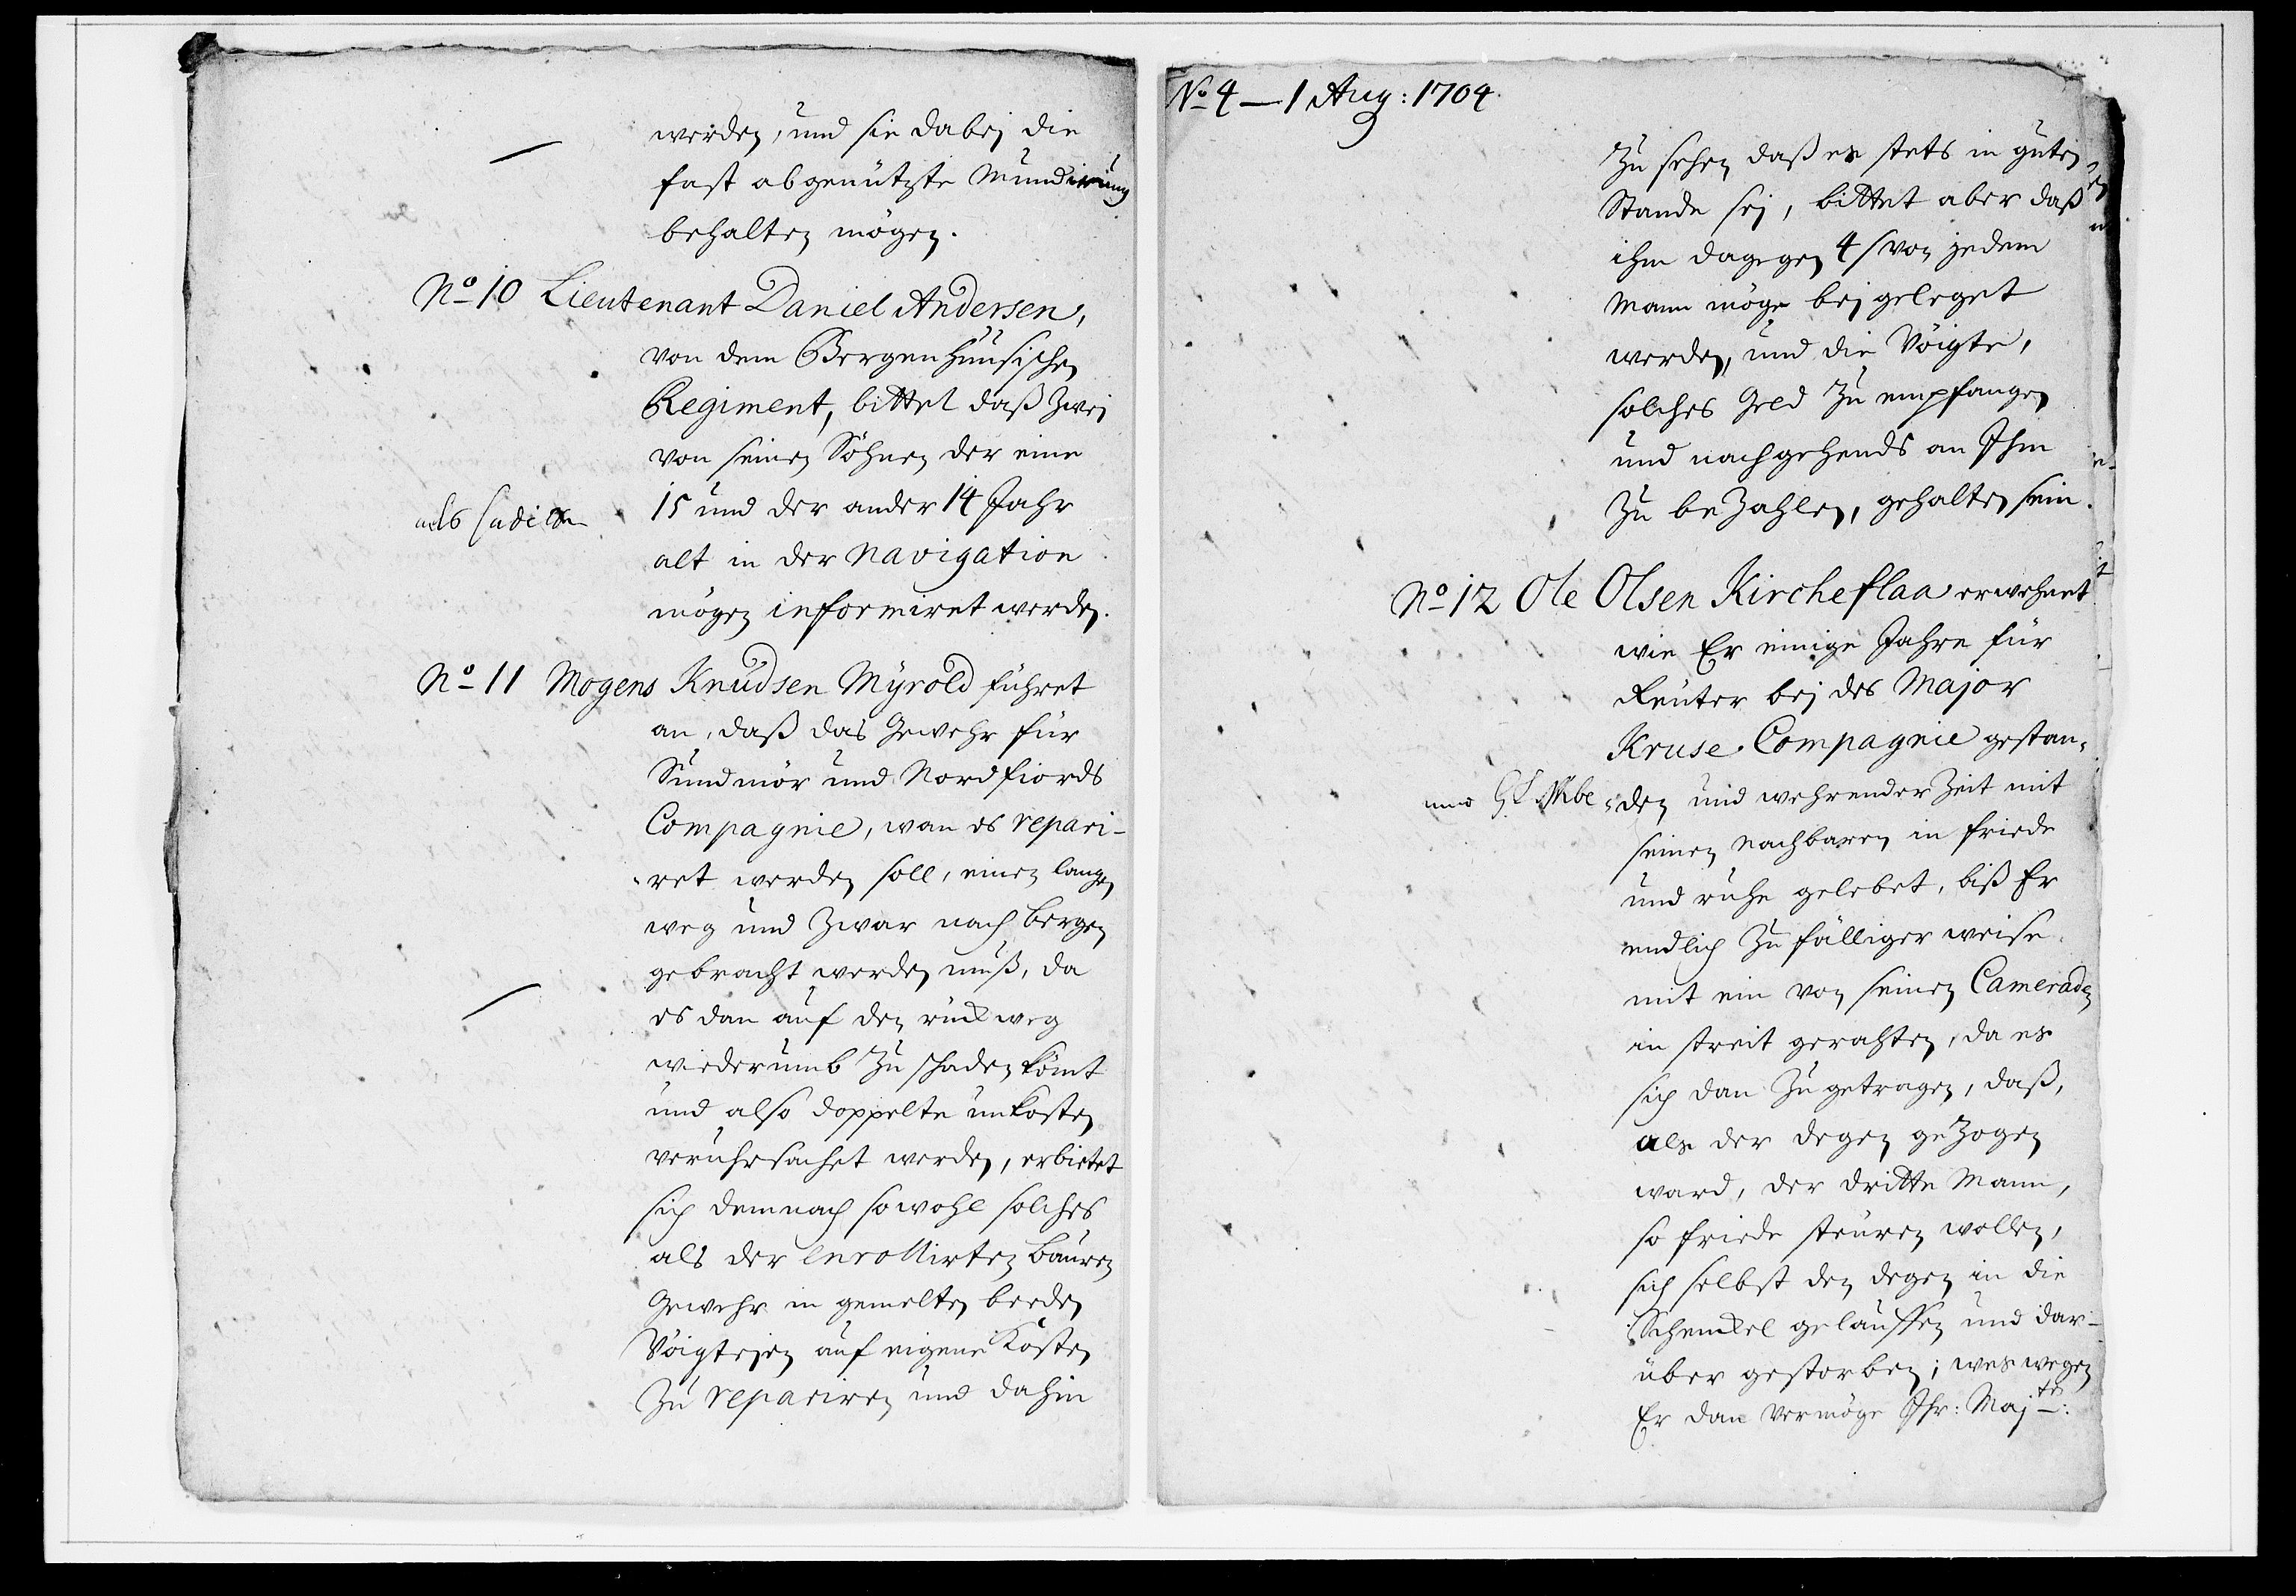 werden, und sie dabej die
fast abgenützte Mundirung
behalten mögen.
No 10 Lieutenant Daniel Andersen,
von dem Bergenhuusischen
Regiment, bittet daß zwej
von seinen Söhnen der eine
15 und der ander 14 Jahr
alt in der Navigation
mögen informiret werden.
No 11 Mogens Knudsen Myrold führet
an, daß das Gewehr für
Sundmör und Nordfiords
Compagnie, wan es repari-
ret werden soll, einen langen
weg und zwar nach Bergen
gebracht werden muß, da
es dan auf den rückweg
wiederumb zu schaden kömt
und also doppelte unkosten
veruhrsachet werden, erbietet
sich demnach sowohl solches
als der enrollirten Bauren
Gewehr in gemelten beeden
Voigtejen auf eigene Kosten
zu repariren und dahin
No 4 — 1 Aug: 1704
zu sehen daß es stets in guten
Stande sej, bittet aber daß
ihm dagegen 4 ß von jedem
Mann möge bejgeleget
werden, und die Vöigte,
solches Geld zu empfangen
und nachgehends an Ihm
zu bezahlen, gehalten sein.
No 12 Ole Olsen Kircheflaa erwehnet
wie Er einige Jahre für
Reuter bej des Major
Kruse Compagnie gestan-
den und wehrender Zeit mit
seinen Nachbaren in friede
und ruhe gelebet, biß Er
endlich zufälliger weise
mit ein von seinen Cameraden
in streit gerahten, da es
sich dan zugetragen, daß,
als der degen gezogen
ward, der dritte Mann,
so friede steuren wollen,
sich selbst den degen in die
Schenckel gelauffen und dar-
über gestorben; weswegen
Er dan vermöge Ihr: Majtt: